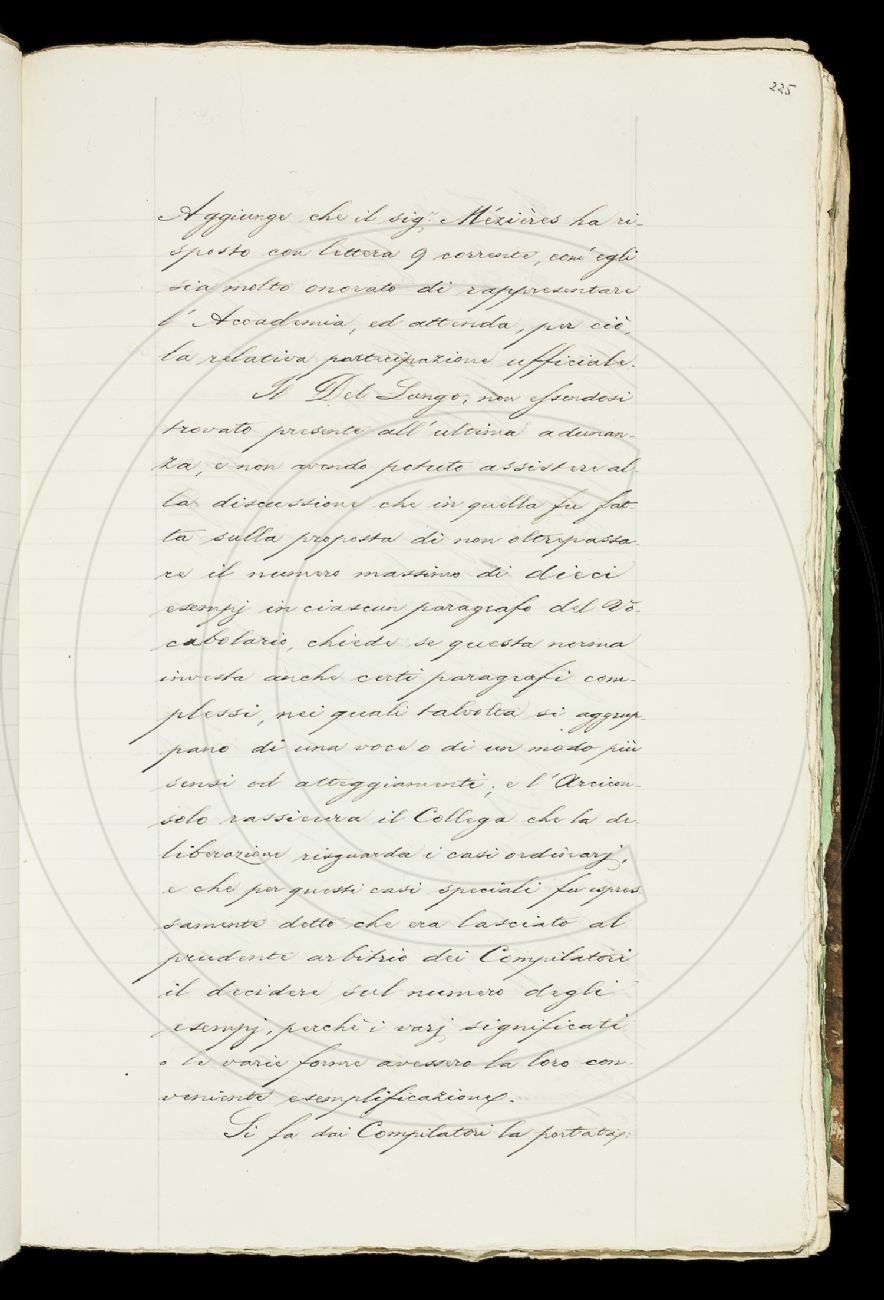 225
Aggiunge che il sig.r Mézières ha ri-
sposto con lettera 9 corrente, com'egli
sia molto onorato di rappresentare
l'Accademia, ed attenda, per ciò,
la relativa partecipazione ufficiale.
Il Del Lungo, non essendosi
trovato presente all'ultima adunan-
za, e non avendo potuto assistere al-
la discussione che in quella fu fat-
ta sulla proposta di non oltrepassa-
re il numero massimo di dieci
esempj in ciascun paragrafo del Vo-
cabolario, chiede se questa norma
investa anche certi paragrafi com-
plessi, nei quali talvolta si aggrup-
pano di una voce o di un modo più
sensi ed atteggiamenti; e l'Arcicon-
solo rassicura il Collega che la de-
liberazione risguarda i casi ordinarj,
e che per questi casi speciali fu espres
samente detto che era lasciato al
prudente arbitrio dei Compilatori
il decidere sul numero degli
esempj, perchè i varj significati
o le varie forme avessero la loro con-
veniente esemplificazione.
Si fa dai Compilatori la portata: